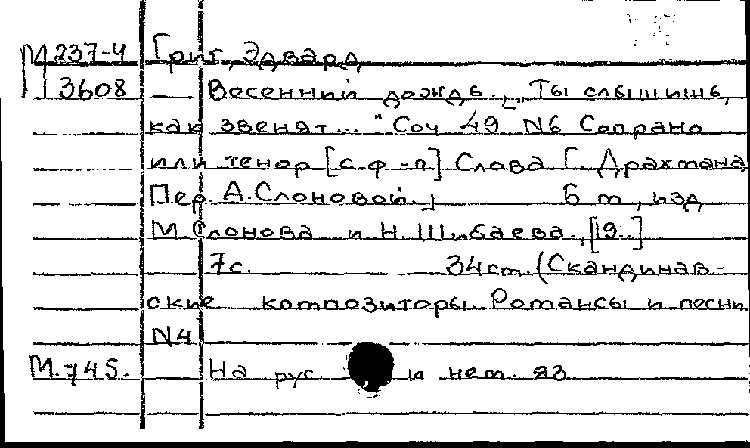 М237-4 Григ, Эдвард
3608 Весенний дождь. „Ты слышишь,
как звенят..." Соч 49 N6 Сопрано
или тенор [с ф-п] Слова Г. Драхмана
Пер. А. Слоновой. Б м, изд
М Слонова и Н. Шибаева, [19..]
7с. 34см. (Скандинав-
ские композиторы. Романсы и песни
N4)
М.745. На рус и нем. яз